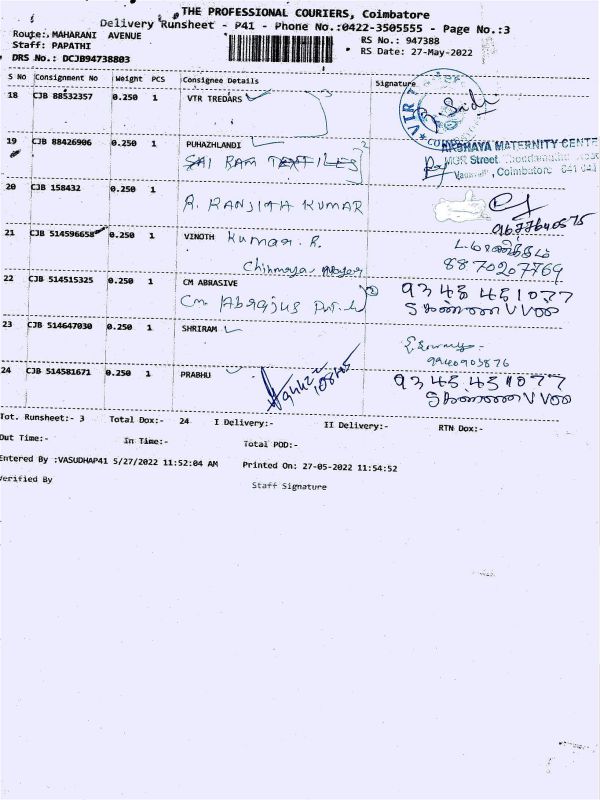 THE PROFESSIONAL COURIERS, Coimbatore
Delivery Runsheet - P41 - Phone No.:0422-3505555 - Page No.:3
Route:.MAHARANI AVENUE
RS No.: 947388
Staff: PAPATHI
RS Date: 27-May-2022
DRS No.: DCJB94738803
S No Consignment No Weight PCS Consignee Details Signature
18 CJB 88532357 0.250 1 VTR TREDARS
19 CJB 88426906 0.250 1 PUHAZHLANDI
SAI RAM TEXTILES
AKSHAYA MATERNITY CENTE
MGR Street
Coimbatore 641 041
20 CJB 158432 0.250 1
R. RANJITH KUMAR
9677640575
21 CJB 514596658 0.250 1 VINOTH Kumar. R.
8870207769
22 CJB 514515325 0.250 1 CM ABRASIVE
9345451077
23 CJB 514647030 0.250 1 SHRIRAM
9940903876
24 CJB 514581671 0.250 1 PRABHU
9345451077
Tot. Runsheet:- 3 Total Dox:- 24 I Delivery:- II Delivery:- RTN Dox:-
Out Time:- In Time:- Total POD:-
Entered By :VASUDHAP41 5/27/2022 11:52:04 AM Printed On: 27-05-2022 11:54:52
Verified By
Staff Signature